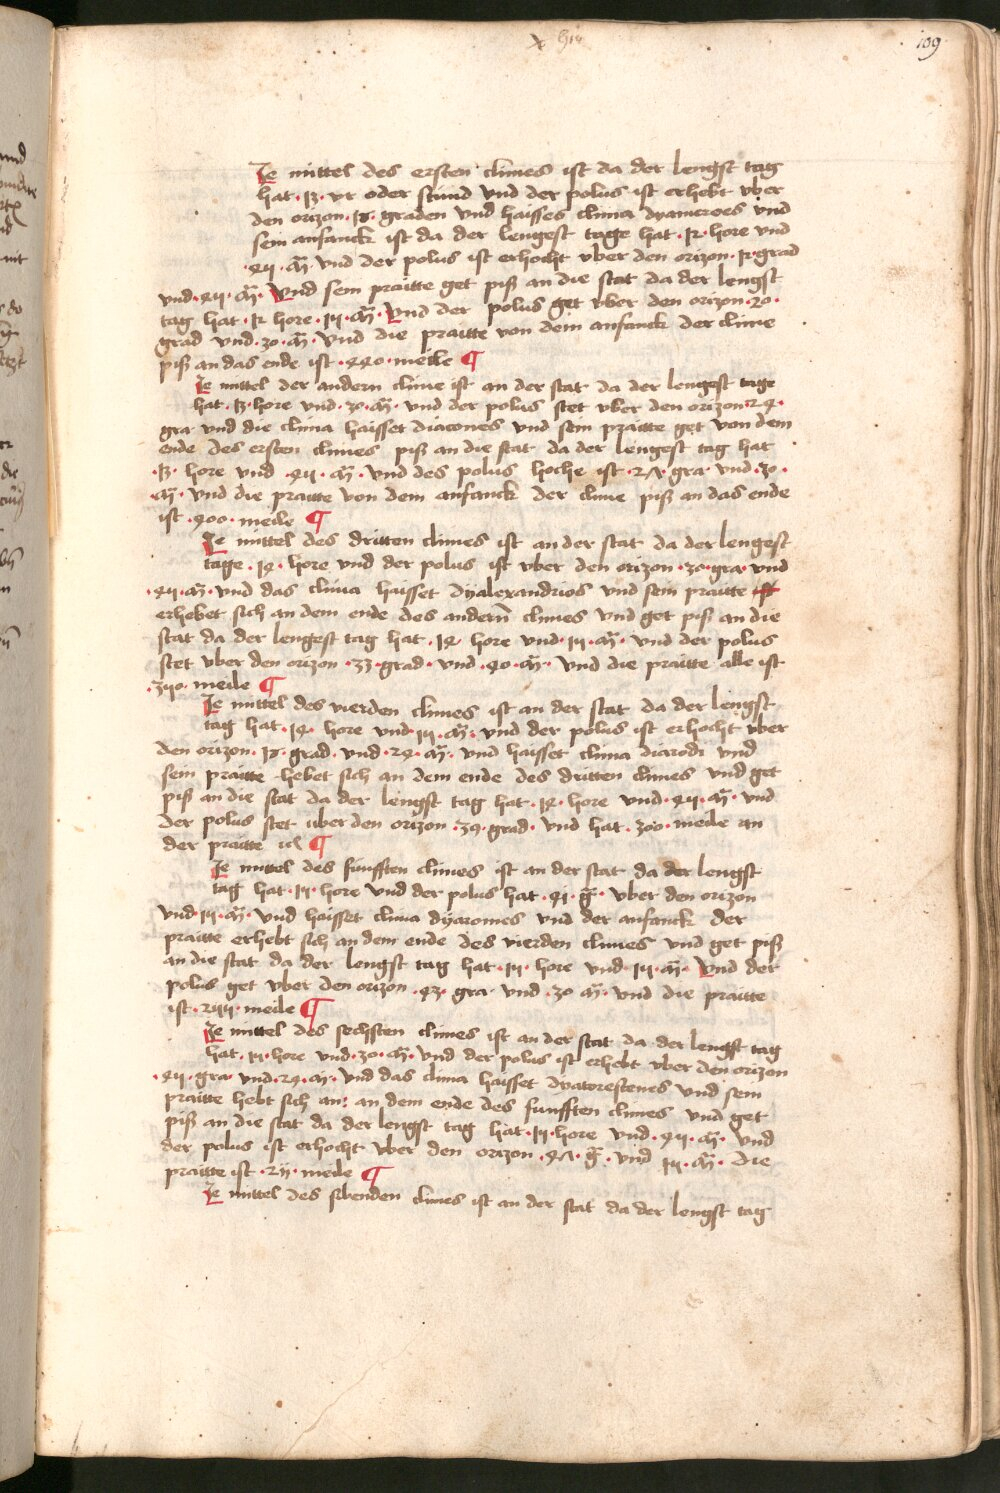 109
Je mittel des ersten climes ist da der lengst tag
hat · 13 · vr oder stund vnd der polus ist erhebt vber
den orizon · 18 · graden vnd haisses clima dyameroes vnd
sein anfanck ist da der lengest tage hat · 12 · hore vnd
· 45 · m̄ · vnd der polus ist erhocht vber den orizon · 12 · grad
vnd · 45 · m̄ · Vnd sein praitte get piß an die stat da der lengst
tag hat · 12 hore · 15 · m̄ · Vnd der polus get vber den orizon · 20 ·
grad vnd · 30 · m̄ · vnd die praitte von dem anfanck der clime
piß an das ende ist · 440 · meile ¶
Je mittel der andern clime ist an der stat da der lengest tage
hat · 13 · hore vnd · 30 · m̄ · vnd der polus stet vber den orizon · 24 ·
gra · vnd die clima haisset diacones vnd sein praitte get von dem
ende des ersten climes piß an die stat da der lengest tag hat
· 13 · hore vnd · 45 · m̄ · vnd des polus hoche ist · 27 · gra · vnd · 30 ·
m̄ · vnd die praitte von dem anfanck der clime piß an das ende
ist · 400 · meile ¶
Je mittel des dritten climes ist an der stat da der lengest
tage · 14 · hore vnd der polus ist vber den orizon · 30 · gra · vnd
· 45 · m̄ · vnd das clima haisset dyalexandrios vnd sein praitte
erhebet sich an dem ende des andern̄ climes vnd get piß an die
stat da der lengest tag hat · 14 · hore vnd · 15 · m̄ · vnd der polus
stet vber den orizon · 33 · grad · vnd · 40 · m̄ · vnd die praitte alle ist
· 350 · meile ¶
Je mittel des vierden climes ist an der stat da der lengst
tag hat · 14 · hore vnd · 15 · m̄ · vnd der polus ist erhocht vber
den orizon · 18 · grad · vnd · 24 · m̄ · vnd haisset clima diarodi vnd
sein praitte hebet sich an dem ende des dritten climes vnd get
piß an die stat da der lengst tag hat · 14 · hore vnd · 45 · m̄ · vnd
der polus stet uber den orizon · 39 · grad · vnd hat · 300 · meile an
der praitte ¶
Je mittel des funfften climes ist an der stat da der lengst
tag hat · 15 · hore vnd der polus hat · 41 · g̅ · vber den orizon
vnd · 15 · m̄ · vnd haisset clima dyaromes vnd der anfanck der
praitte erhebt sich an dem ende des vierden climes vnd get piß
an die stat da der lengst tag hat · 15 · hore vnd · 15 · m̄ · Vnd der
polus get vber den orizon · 43 · gra · vnd · 30 m̄ · vnd die praitte
ist · 255 · meile ¶
Je mittel des sechsten climes ist an der stat da der lengst tag
hat · 15 · hore vnd · 30 · m̄ · vnd der polus ist erhebt vber den orizon
· 45 · gra · vnd · 24 · m̄ · vnd das clima haisset dyatorestenes vnd sein
praitte hebt sich an : an dem ende des funfften climes vnd get
piß an die stat da der lengst tag hat · 15 · hore vnd · 45 · m̄ · vnd
der polus ist erhocht vber den orizon · 47 · g̅ · vnd 15 · m̄ · die
praitte ist · meile ¶
Je mittel des sibenden climes ist an der stat da der lengst tag